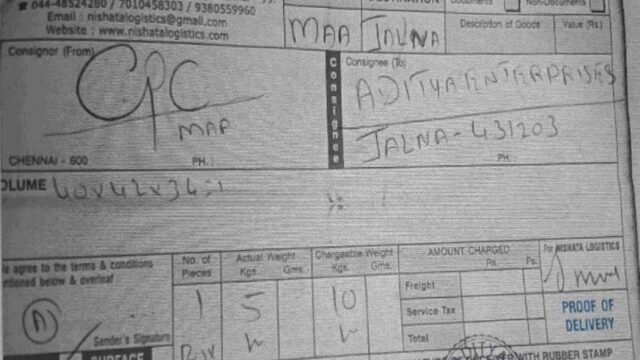 044-48524280 / 7010458303 / 9380559960
Email : nishatalogistics@gmail.com
Website : www.nishatalogistics.com
MAA JALNA
Description of Goods Value (Rs.)
Consignor (From)
CPC
MAA
CHENNAI - 600 PH :
Consignee
Consignee (To)
ADITYA ENTERPRISES
JALNA - 431203
PH
OLUME 40x42x34:1
e agree to the terms & conditions
tioned below & overleaf
A
Sender's Signature
No. of Pieces
Actual Weight
Kgs. Gms.
Chargeable Weight
Kgs. Gms.
1 5 10
AMOUNT CHARGED
Rs. Ps.
Freight
Service Tax
Total
For NISHATA LOGISTICS
PROOF OF
DELIVERY
SURFACE
WITH RUBBER STAMP